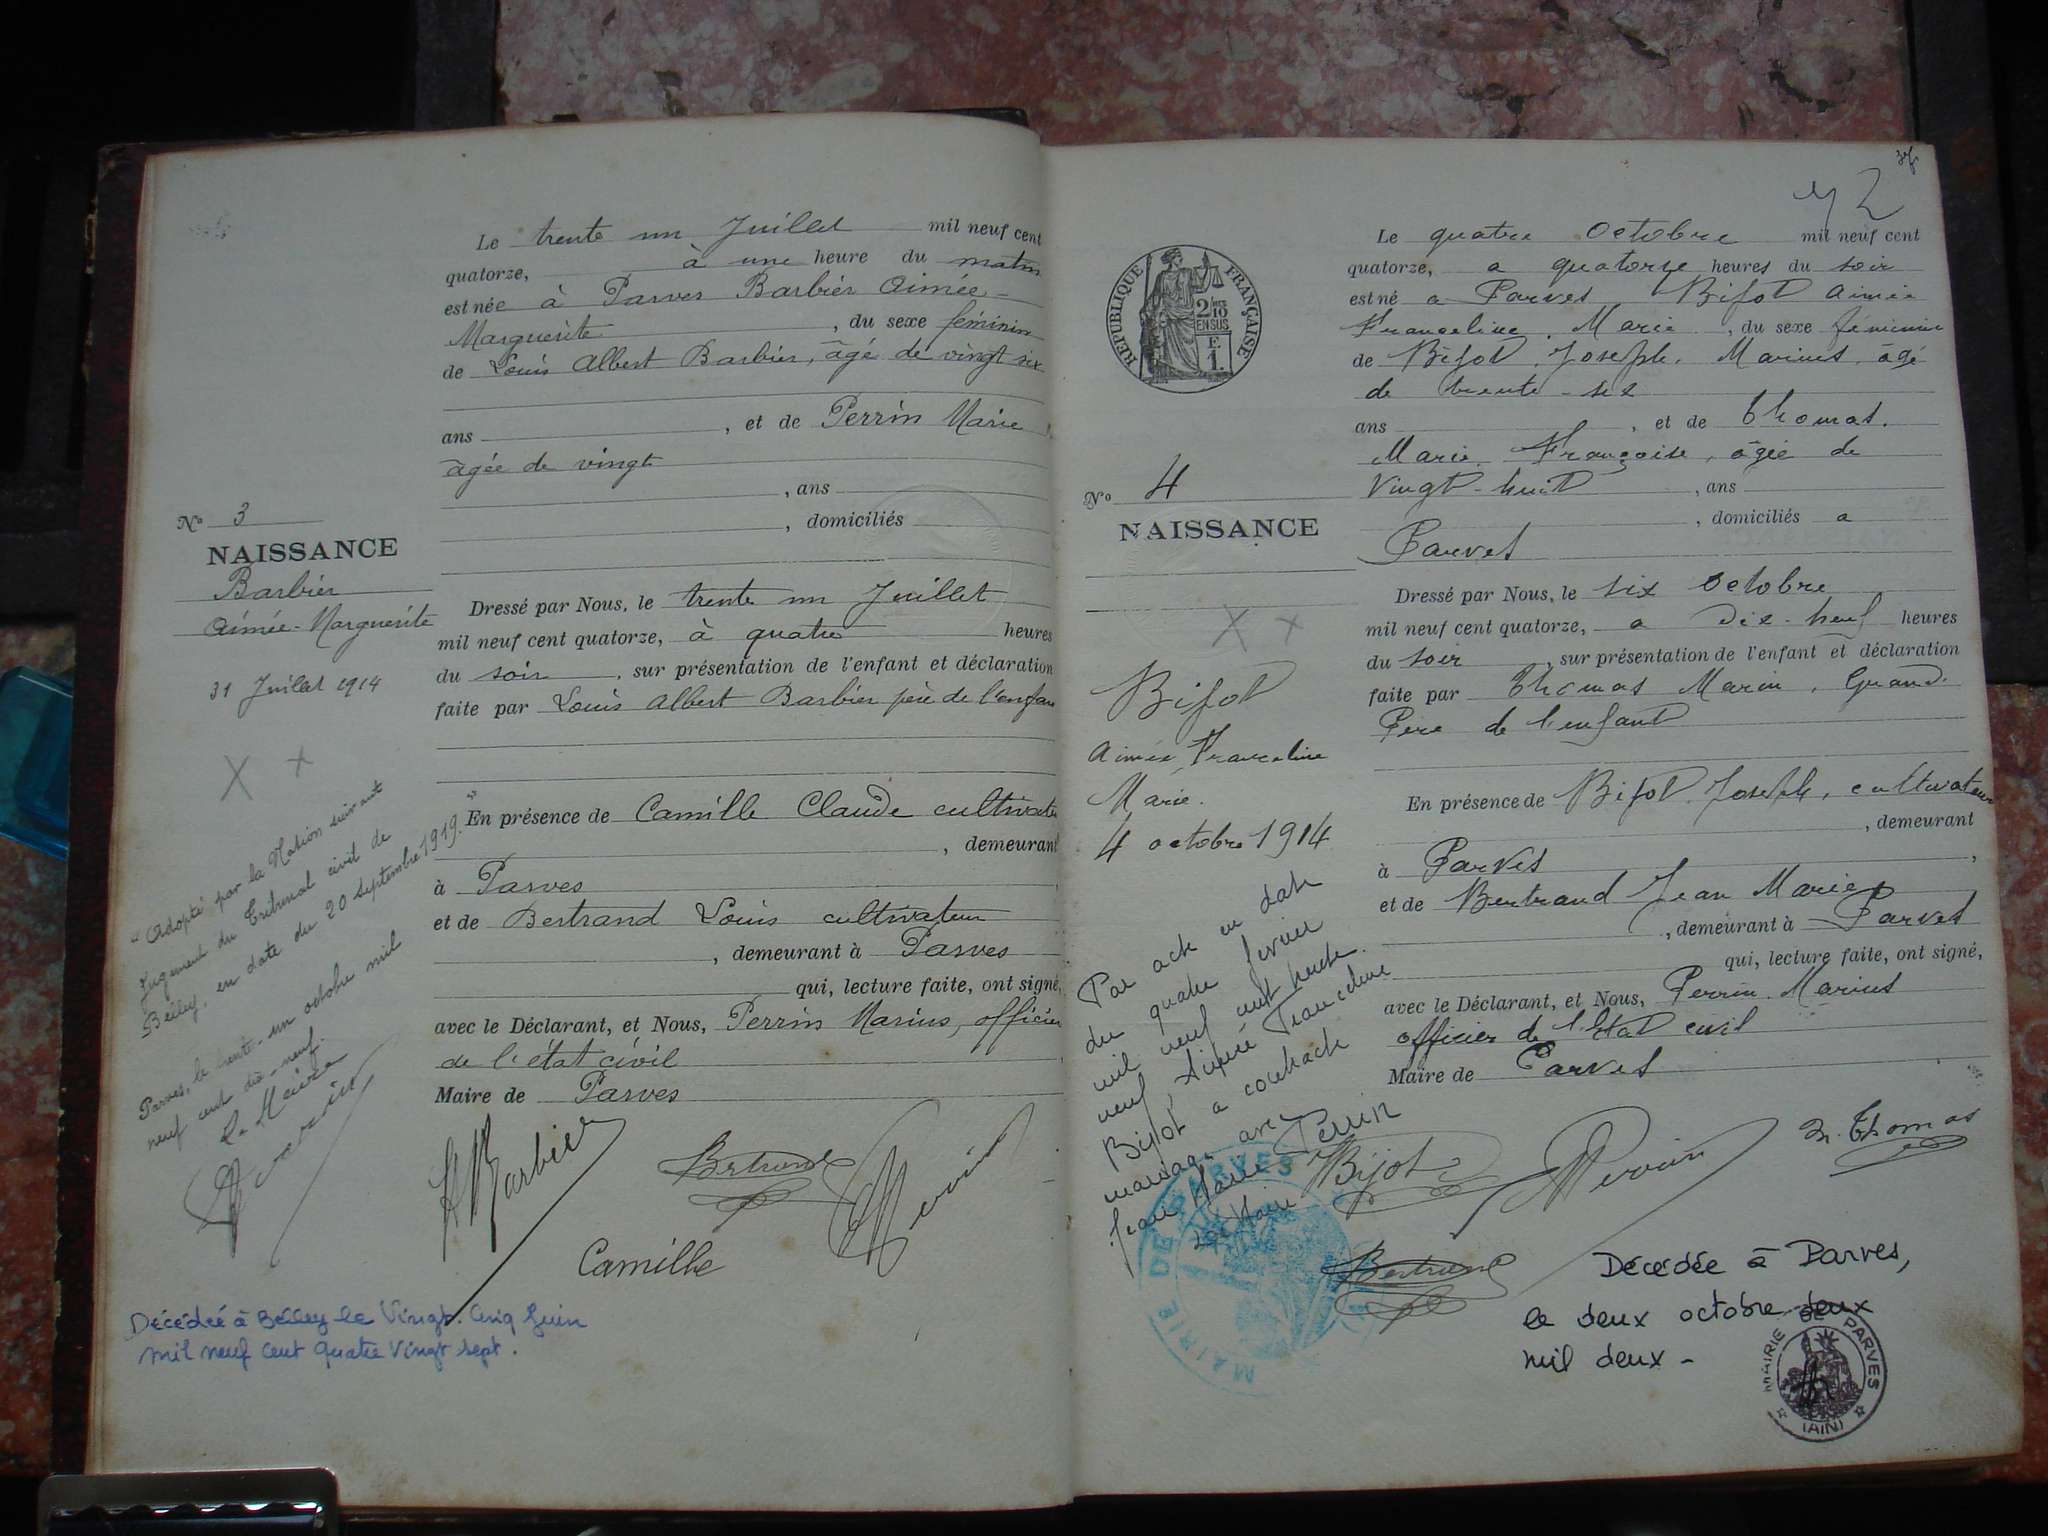 Le trente un Juillet mil neuf cent
quatorze, à une heure du matin
est née à Parves Barbier Aimée
Marguerite , du sexe féminin
de Louis Albert Barbier, âgé de vingt six
ans , et de Perrin Marie
âgée de vingt
, ans
, domiciliés
N° 3
NAISSANCE
Barbier
Aimée-Marguerite
31 Juillet 1914
Dressé par Nous, le trente un Juillet
mil neuf cent quatorze, à quatre heures
du soir , sur présentation de l'enfant et déclaration
faite par Louis Albert Barbier père de l'enfan
En présence de Camille Claude cultivate
, demeurant
à Parves
et de Bertrand Louis cultivateur
, demeurant à Parves
qui, lecture faite, ont signé,
avec le Déclarant, et Nous, Perrin Marius, officier
de l'état civil
Maire de Parves
"Adopté par la Nation suivant
Jugement du Tribunal civil de
Belley, en date du 20 Septembre 1919."
Parves, le trente-un octobre mil
neuf cent dix-neuf.
Le Maire
Perrin
A Barbier
Bertrand
Perrin
Camille
Décédée à Belley le Vingt. Cinq Juin
mil neuf cent quatre Vingt sept.
42
Le quatre Octobre mil neuf cent
quatorze, a quatorze heures du soir
est né a Parves Bijot Aimée
Franceline Marie , du sexe féminin
de Bijot Joseph, Marius âgé
de trente-six
ans , et de Thomas.
Marie Françoise, âgée de
Vingt-huit , ans
, domiciliés a
Parves
REPUBLIQUE FRANÇAISE
2/10
EN SUS
E
1.
N° 4
NAISSANCE
Bijot
Aimée Franceline
Marie.
4 octobre 1914
Dressé par Nous, le six Octobre
mil neuf cent quatorze, a Dix-neuf heures
du soir , sur présentation de l'enfant et déclaration
faite par Thomas Marin, Grand
Père de l'enfant
En présence de Bijot Joseph, cultivateur
, demeurant
à Parves ,
et de Bertrand Jean Marie
, demeurant à Parves
qui, lecture faite, ont signé,
avec le Déclarant, et Nous, Perrin Marius
officier de l'Etat civil
Maire de Parves
Par acte en date
du quatre février
mil neuf cent trente
neuf, Aimée Franceline
Bijot a contracté
mariage avec
Jean Marie Perrin
Le Maire
MAIRIE DE PARVES (AIN)
Bijot
Perrin
M. Thomas
Bertrand
Décédée à Parves,
le deux octobre deux
mil deux -
MAIRIE DE PARVES
(AIN)